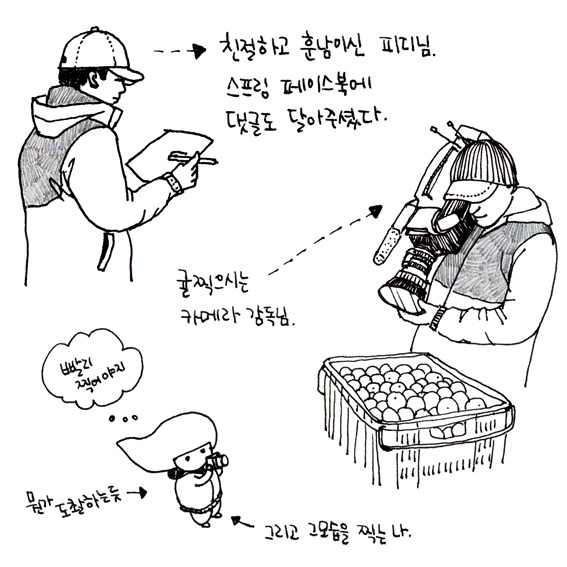 친절하고 훈남이신 피디님.
스프링 페이스북에
댓글도 달아주셨다.
귤찍으시는
카메라 감독님.
빨리
찍어야지
뭔가 도촬하는듯
그리고 그모습을 찍는 나.